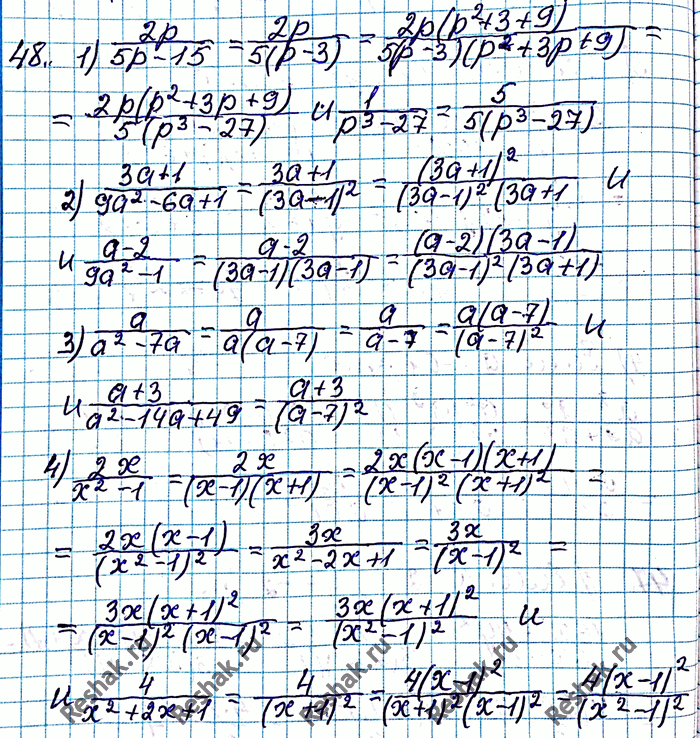 48.. 1) 2p/(5p-15) = 2p/(5(p-3)) = 2p(p²+3+9)/(5(p-3)(p²+3p+9)) =
= 2p(p²+3p+9)/(5(p³-27)) и 1/(p³-27) = 5/(5(p³-27))
2) (3a+1)/(9a²-6a+1) = (3a+1)/(3a-1)² = (3a+1)²/((3a-1)²(3a+1 и
и (a-2)/(9a²-1) = (a-2)/((3a-1)(3a-1)) = (a-2)(3a-1)/((3a-1)²(3a+1))
3) a/(a²-7a) = a/(a(a-7)) = a/(a-7) = a(a-7)/(a-7)² и
и (a+3)/(a²-14a+49) = (a+3)/(a-7)²
4) 2x/(x²-1) = 2x/((x-1)(x+1)) = 2x(x-1)(x+1)/((x-1)²(x+1)²) =
= 2x(x-1)/(x²-1)² = 3x/(x²-2x+1) = 3x/(x-1)² =
= 3x(x+1)²/((x-1)²(x-1)²) = 3x(x+1)²/(x²-1)² и
и 4/(x²+2x+1) = 4/(x+1)² = 4(x-1)²/((x+1)²(x-1)²) = 4(x-1)²/(x²-1)²
Reshak.ru Reshak.ru Reshak.ru Reshak.ru Reshak.ru